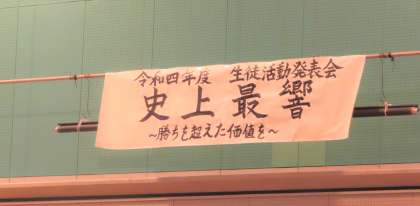 令和四年度　生徒活動発表会
史上最響
～勝ちを超えた価値を～